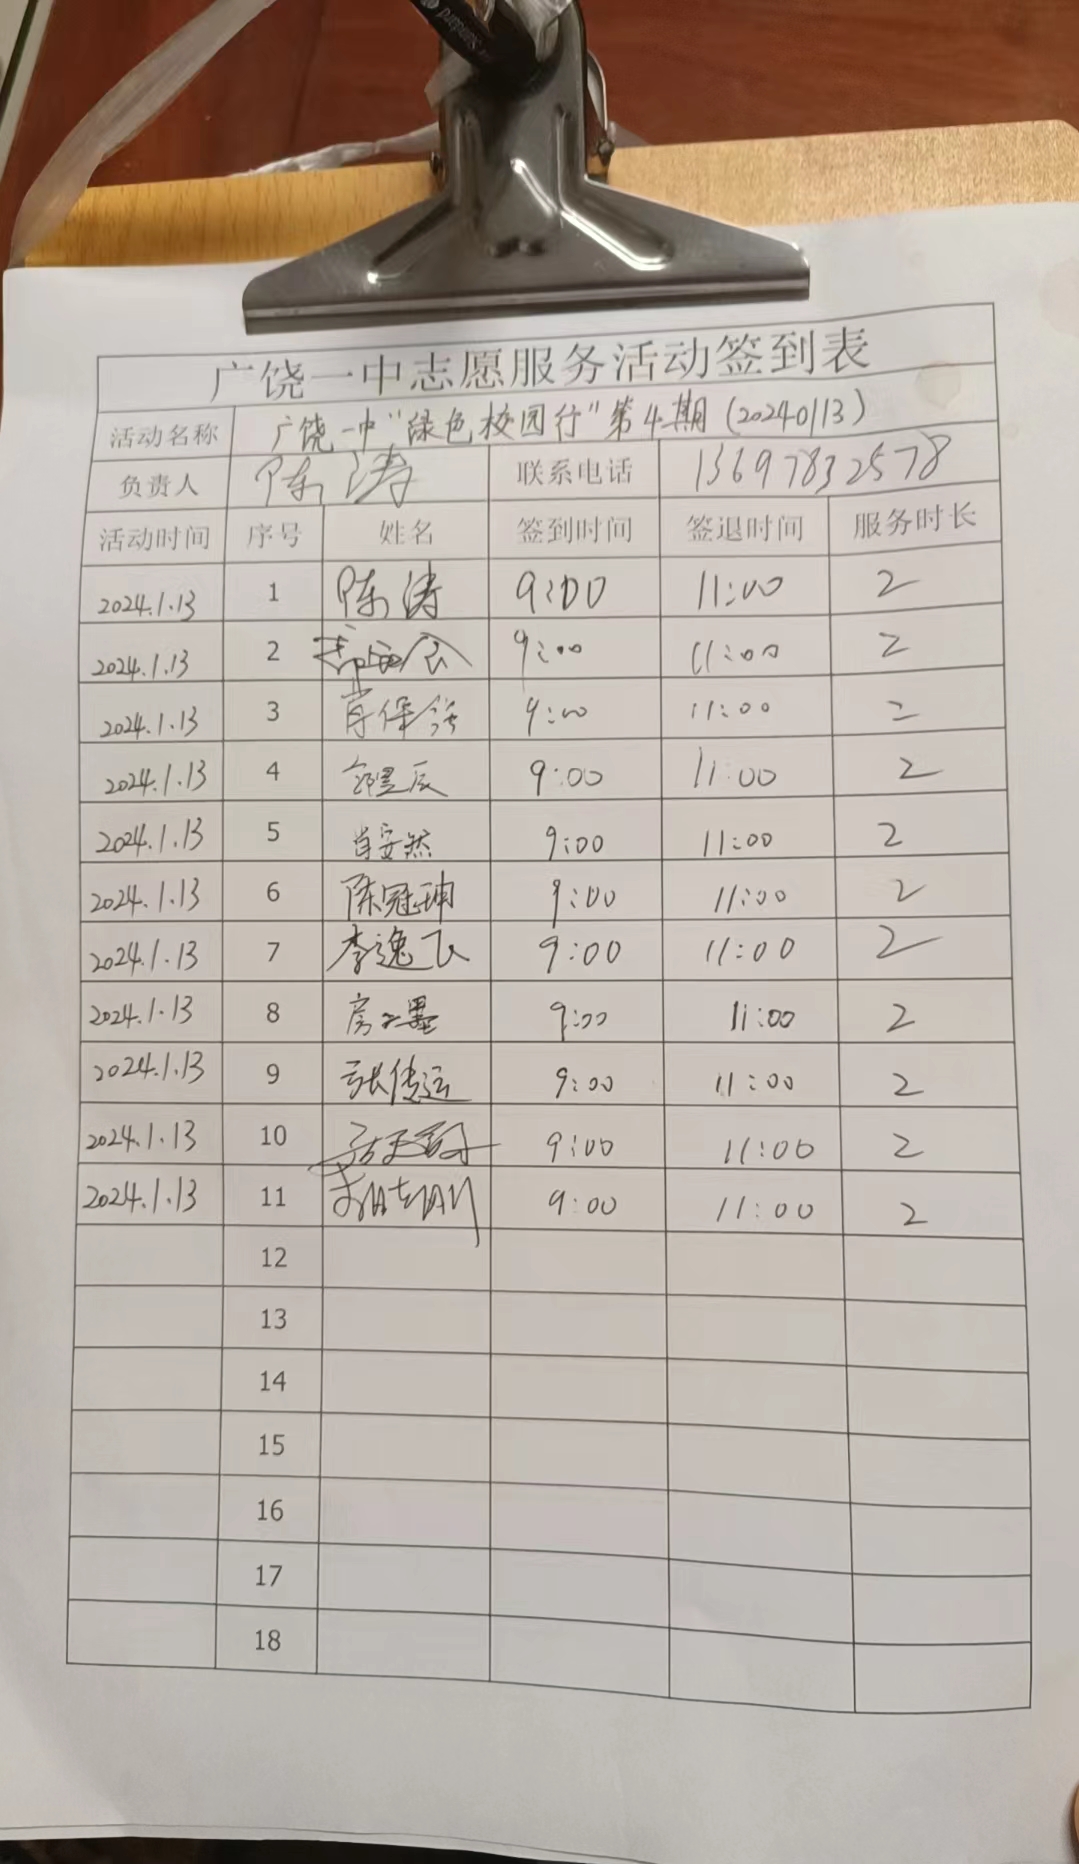 Standard
广饶一中志愿服务活动签到表
活动名称 广饶一中“绿色校园行”第4期(20240113)
负责人 陈涛 联系电话 13697832578
活动时间 序号 姓名 签到时间 签退时间 服务时长
2024.1.13 1 陈涛 9:00 11:00 2
2024.1.13 2 9:00 11:00 2
2024.1.13 3 肖保 9:00 11:00 2
2024.1.13 4 辰 9:00 11:00 2
2024.1.13 5 肖安然 9:00 11:00 2
2024.1.13 6 陈冠珅 9:00 11:00 2
2024.1.13 7 李逸飞 9:00 11:00 2
2024.1.13 8 房 墨 9:00 11:00 2
2024.1.13 9 张传运 9:00 11:00 2
2024.1.13 10 9:00 11:00 2
2024.1.13 11 9:00 11:00 2
12
13
14
15
16
17
18